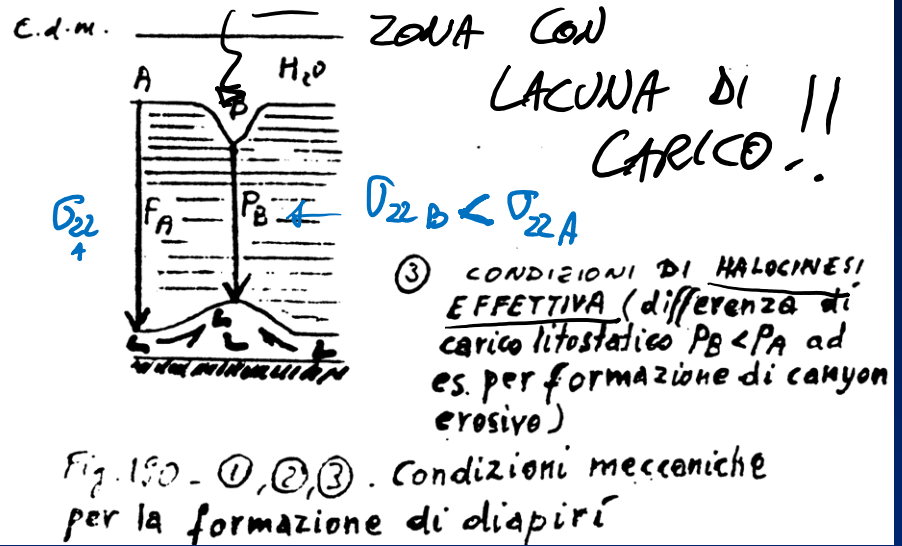 E.d.m.
ZONA CON
LACUNA DI
CARICO!!
H₂O
A
B
σ₂₂ A
F_A
P_B
σ₂₂ B < σ₂₂ A
③ CONDIZIONI DI HALOCINESI
EFFETTIVA (differenza di
carico litostatico P_B < P_A ad
es. per formazione di canyon
erosivo)
L
L
L
L
Fig. 150 - ①,②,③. Condizioni meccaniche
per la formazione di diapiri